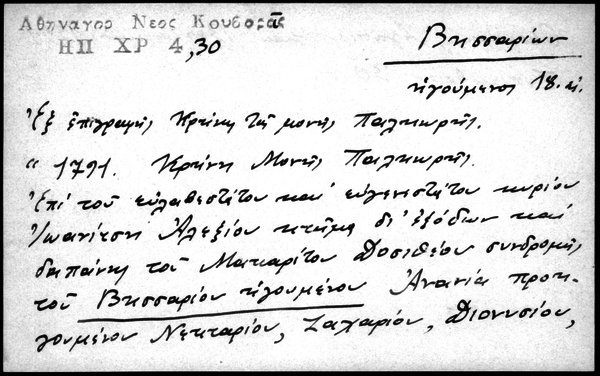 Αθηναγορ Νεος Κουβαρᾶς
ΗΠ ΧΡ 4,30
Βησσαρίων
ἡγούμενος 18. αἰ.
Ἐξ ἐπιγραφῆς Κρήνης τῆς μονῆς Παλιουρῆς.
" 1791. Κρήνη Μονῆς Παλιουρῆς.
Ἐπί τοῦ εὐλαβεστάτου καί εὐγενεστάτου κυρίου
Ἰωανίτση Ἀλεξίου κτῆμα δι' ἐξόδων καί
δαπάνης τοῦ Μακαρίτου Δοσιθέου συνδρομῆς
τοῦ Βησσαρίου ἡγουμένου Ἀνανία προη-
γουμένου Νεκταρίου, Ζαχαρίου, Διονυσίου,